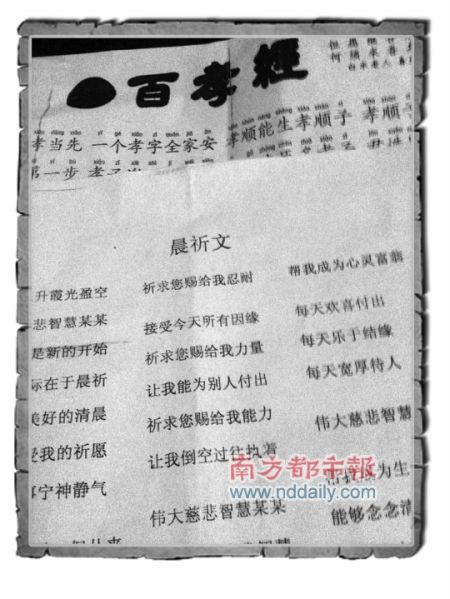 百孝經
孝当先 一个孝字全家安
孝顺能生孝顺子 孝顺
晨祈文
升霞光盈空
悲智慧某某
是新的开始
际在于晨祈
美好的清晨
受我的祈愿
宁神静气
祈求您赐给我忍耐
接受今天所有因缘
祈求您赐给我力量
让我能为别人付出
祈求您赐给我能力
让我倒空过往执着
伟大慈悲智慧某某
帮我成为心灵富翁
每天欢喜付出
每天乐于结缘
每天宽厚待人
伟大慈悲智慧
成为生
能够念念清
南方都市報
www.nddaily.com